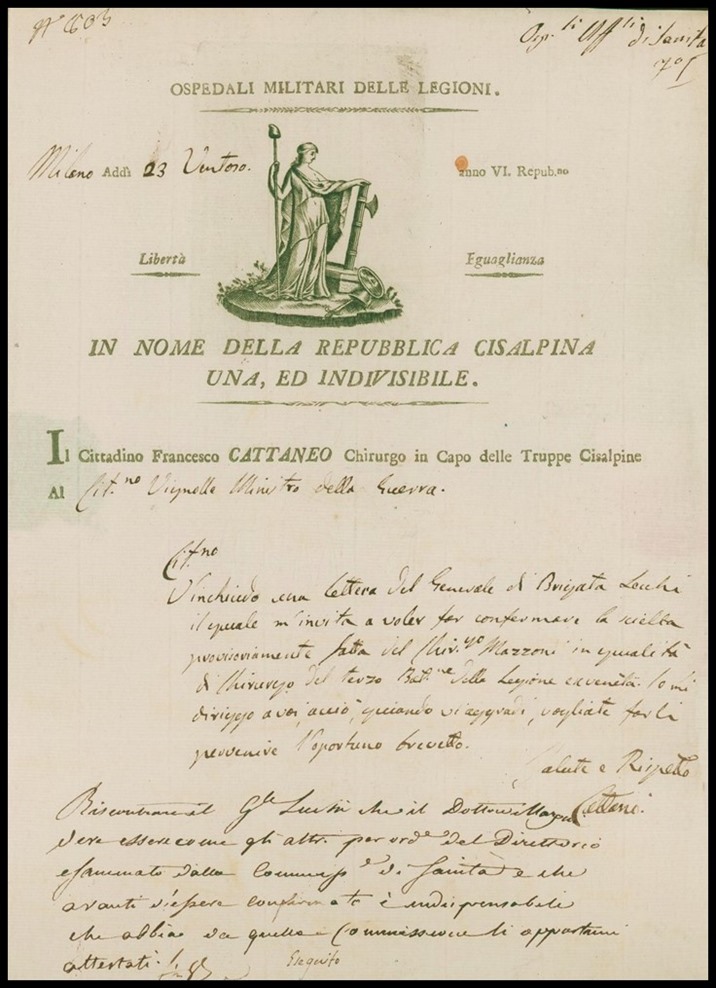 N° 603
Osp.li Uff.li di Sanità
OSPEDALI MILITARI DELLE LEGIONI.
Milano Addì 23 Ventoso.
anno VI. Repub.no
Libertà
Eguaglianza
IN NOME DELLA REPUBBLICA CISALPINA
UNA, ED INDIVISIBILE.
Il Cittadino Francesco CATTANEO Chirurgo in Capo delle Truppe Cisalpine
Al Cit.no Vignolle Ministro della Guerra.
Cit.no
V'inchiudo una lettera del Generale di Brigata Lechi
il quale m'invita a voler far confermare la scielta
provvisoriamente fatta del Chir.go Mazzoni in qualità
di Chirurgo del terzo Bat.ne della Legione Io mi
diriggo a voi, acciò, quando vi aggradi, vogliate farli
pervenire l'oportuno brevetto.
Salute e Rispetto
Cattaneo.
Riscontrare al G.le che il Dottor
deve essere come gli altri per ord.e del Direttorio
esaminato dalla Commiss.e di Sanità e che
avanti d'essere confermato è indispensabile
che abbia da quella Commissione li opportuni
attestati.
Eseguito